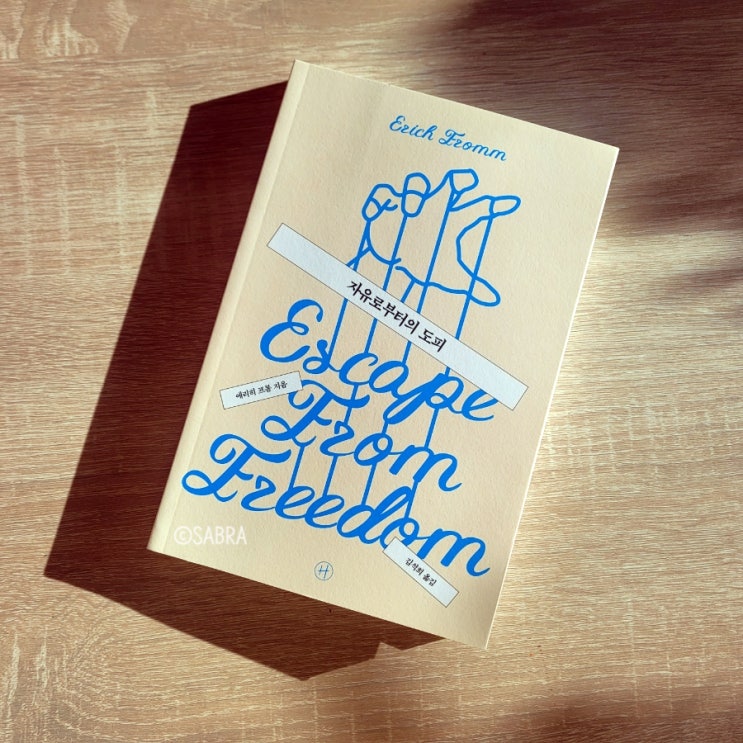 Erich Fromm
자유로부터의 도피
Escape
에리히 프롬 지음
From
Freedom
김석희 옮김
H
©SABRA